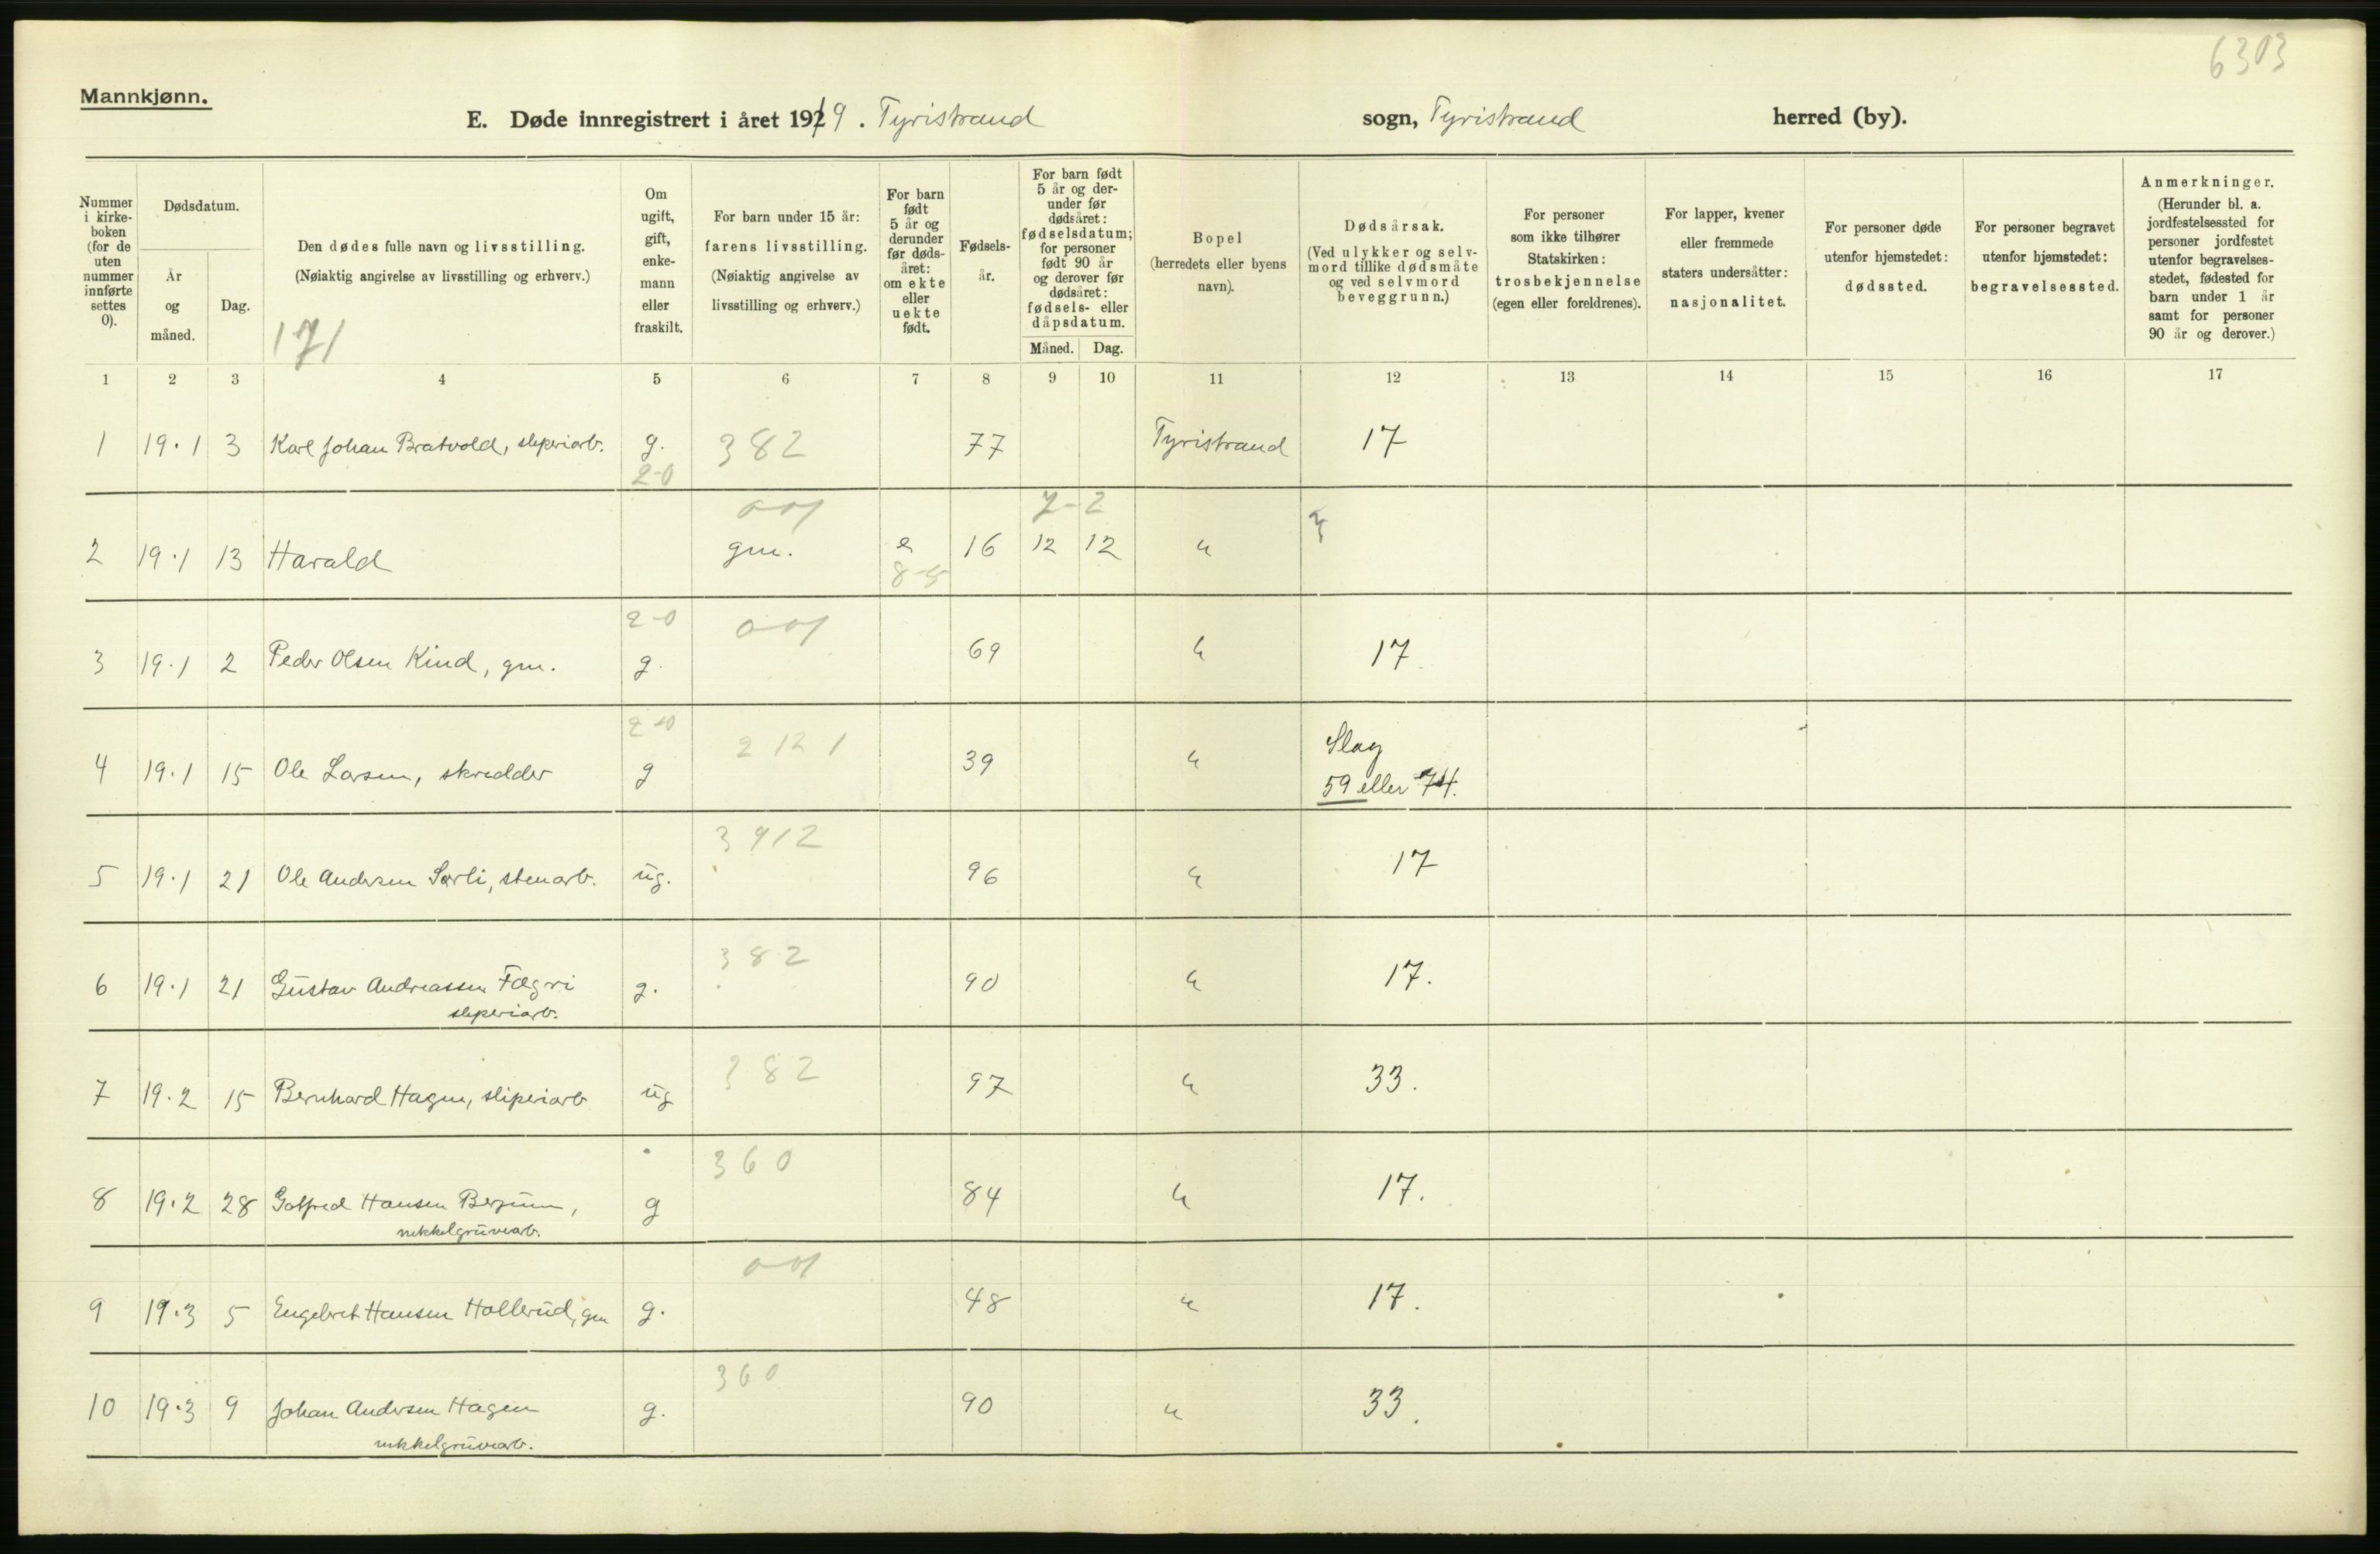 6303
Mannkjønn.
E. Døde innregistrert i året 1919. Tyristrand sogn, Tyristrand herred (by).
Nummer i kirke-boken (for de uten nummer innførte settes 0).
Dødsdatum.
År og måned.
Dag.
Den dødes fulle navn og livsstilling.
(Nøiaktig angivelse av livsstilling og erhverv.)
171
Om ugift, gift, enke-mann eller fraskilt.
For barn under 15 år: farens livsstilling.
(Nøiaktig angivelse av livsstilling og erhverv.)
For barn født 5 år og derunder før døds-året: om ekte eller uekte født.
Fødsels-år.
For barn født 5 år og der-under før dødsåret: fødselsdatum; for personer født 90 år og derover før dødsåret: fødsels- eller dåpsdatum.
Måned. Dag.
Bopel (herredets eller byens navn).
Dødsårsak.
(Ved ulykker og selv-mord tillike dødsmåte og ved selvmord beveggrunn.)
For personer som ikke tilhører Statskirken: trosbekjennelse (egen eller foreldrenes).
For lapper, kvener eller fremmede staters undersåtter: nasjonalitet.
For personer døde utenfor hjemstedet: dødssted.
For personer begravet utenfor hjemstedet: begravelsessted.
Anmerkninger. (Herunder bl. a. jordfestelsessted for personer jordfestet utenfor begravelses-stedet, fødested for barn under 1 år samt for personer 90 år og derover.)
1 2 3 4 5 6 7 8 9 10 11 12 13 14 15 16 17
1 19.1 3 Karl Johan Bratvold, sliperiarb. g. 382 77 Tyristrand 17
2-0
001 7-2
2 19.1 13 Harald gm. e 16 12 12 "
8-5
2-0 001
3 19.1 2 Peder Olsen Kind, gm. g. 69 " 17.
2-0 2121 Slag
4 19.1 15 Ole Larsen, skredder g 39 " 59 eller 74.
3912
5 19.1 21 Ole Andersen Sørli, stenarb. ug. 96 " 17
382
6 19.1 21 Gustav Andreassen Fægri g. 90 " 17.
sliperiarb.
382
7 19.2 15 Bernhard Hagen, sliperiarb ug 97 " 33.
360
8 19.2 28 Gotfred Hansen g 84 " 17.
nikkelgruvearb.
001
9 19.3 5 Engebret Hansen Hollerud, gm g. 48 " 17.
360
10 19.3 9 Johan Andersen Hagen g. 90 " 33.
nikkelgruvearb.